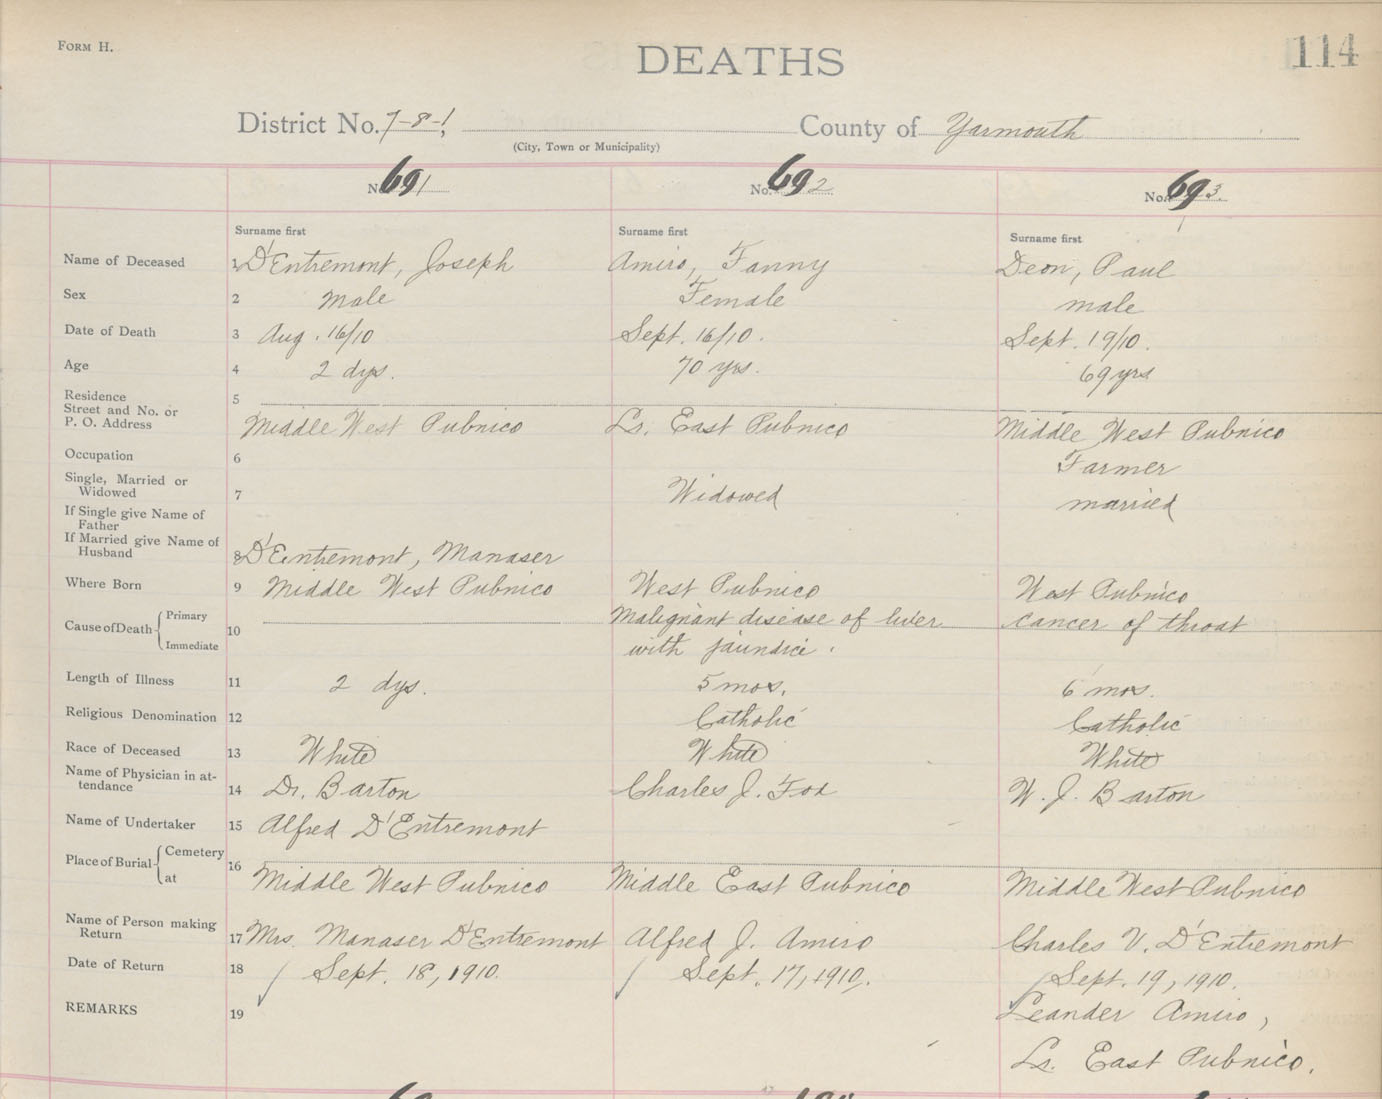 FORM H.
DEATHS
114
District No. 7-8-1, County of Yarmouth
(City, Town or Municipality)
No. 691 No. 692 No. 693.
Surname first Surname first Surname first
Name of Deceased 1 D'Entremont, Joseph Amiro, Fanny Deon, Paul
Sex 2 Male Female male
Date of Death 3 Aug. 16/10 Sept. 16/10. Sept. 19/10.
Age 4 2 dys. 70 yrs. 69 yrs
Residence 5
Street and No. or
P. O. Address Middle West Pubnico Lr. East Pubnico Middle West Pubnico
Occupation 6 Farmer
Single, Married or
Widowed 7 Widowed married
If Single give Name of
Father
If Married give Name of
Husband 8 D'Entremont, Manaser
Where Born 9 Middle West Pubnico West Pubnico West Pubnico
Cause of Death Primary 10 Malignant disease of liver cancer of throat
Immediate with jaundice.
Length of Illness 11 2 dys. 5 mos. 6 mos.
Religious Denomination 12 Catholic Catholic
Race of Deceased 13 White White White
Name of Physician in at-
tendance 14 Dr. Barton Charles J. Fox W. J. Barton
Name of Undertaker 15 Alfred D'Entremont
Place of Burial Cemetery 16
at Middle West Pubnico Middle East Pubnico Middle West Pubnico
Name of Person making
Return 17 Mrs. Manaser D'Entremont Alfred J. Amiro Charles V. D'Entremont
Date of Return 18 Sept. 18, 1910. Sept. 17, 1910. Sept. 19, 1910.
REMARKS 19 Leander Amiro,
Lr. East Pubnico.